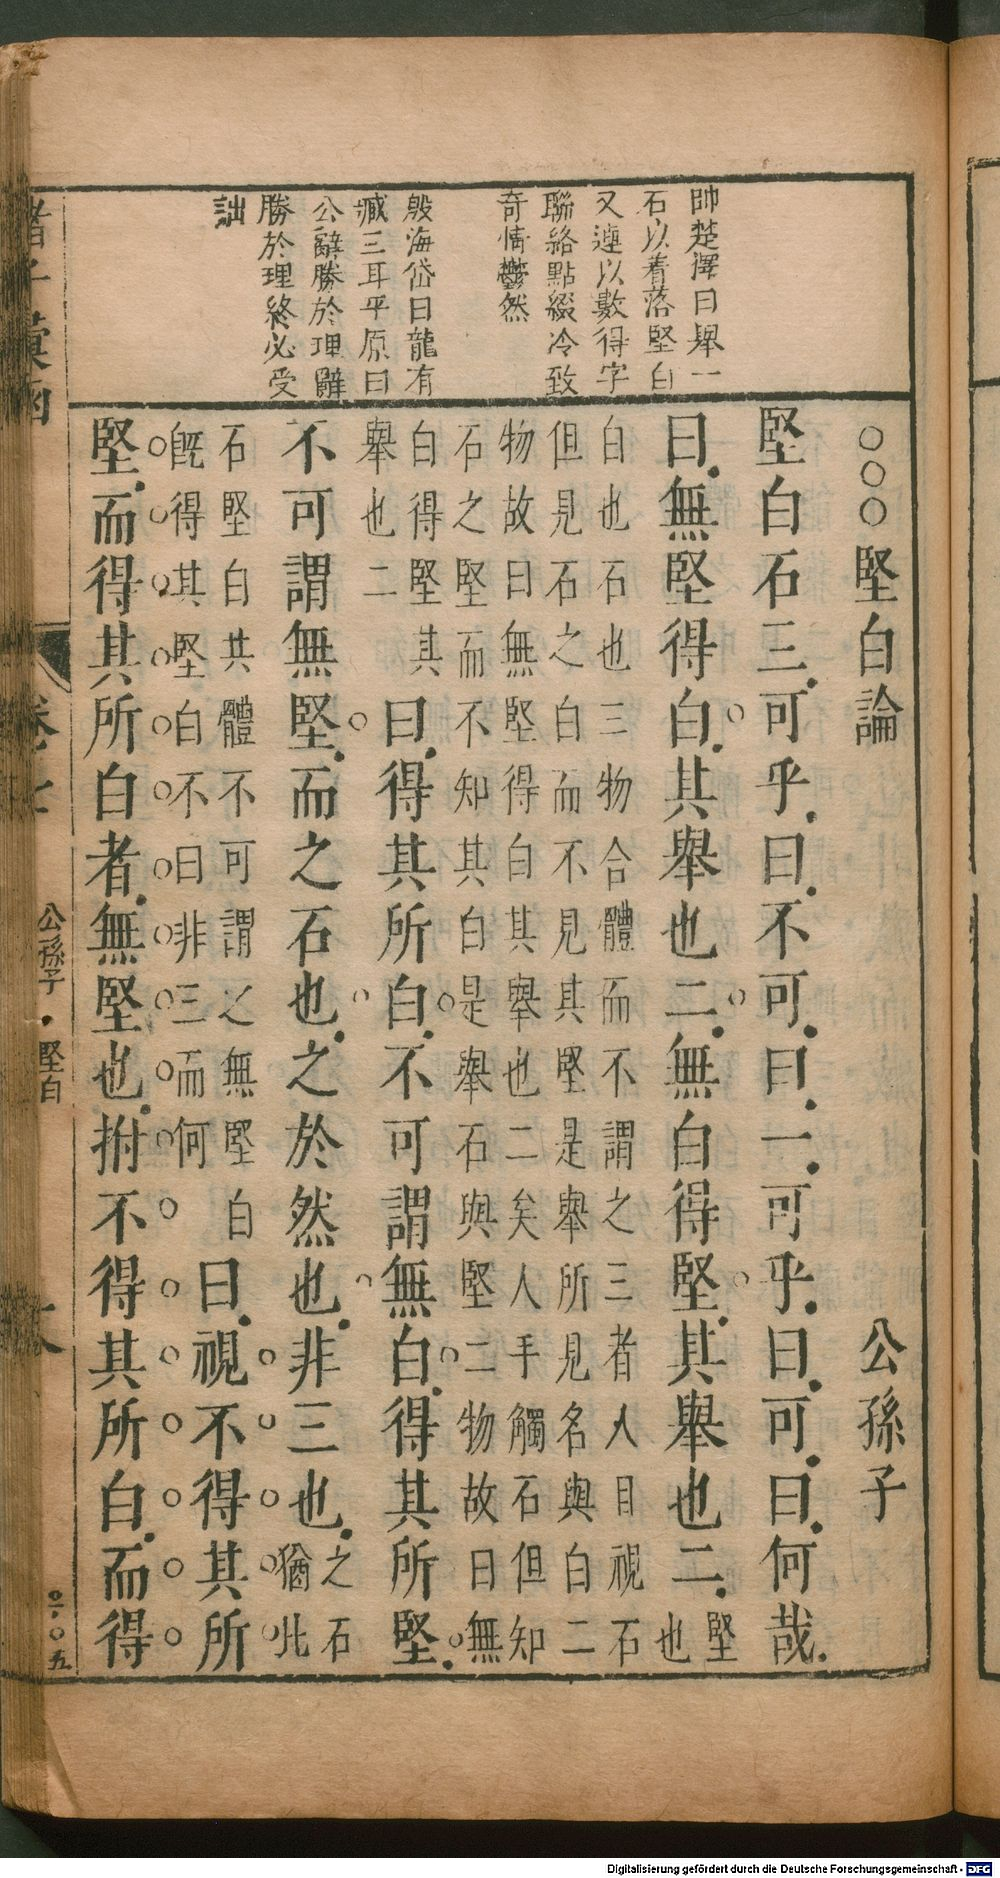 帥楚澤曰舉一
石以着落堅白
又連以數得字
聯絡點綴冷致
奇情鬱然
殷海岱曰龍有
臧三耳平原曰
公辭勝於理辭
勝於理終必受
詘
○○○堅白論 公孫子
堅白石三可乎曰不可曰一可乎曰可曰何哉
曰無堅得白其舉也二無白得堅其舉也二堅
也
白也石也三物合體而不謂之三者人目視石
但見石之白而不見其堅是舉所見名與白二
物故曰無堅得白其舉也二矣人手觸石但知
石之堅而不知其白是舉石與堅二物故曰無
白得堅其
舉也二
曰得其所白不可謂無白得其所堅
不可謂無堅而之石也之於然也非三也之石
猶此
石堅白共體不可謂之無堅白
既得其堅白不曰非三而何
曰視不得其所
堅而得其所白者無堅也拊不得其所白而得
諸子彙函 卷七 公孫子·堅白